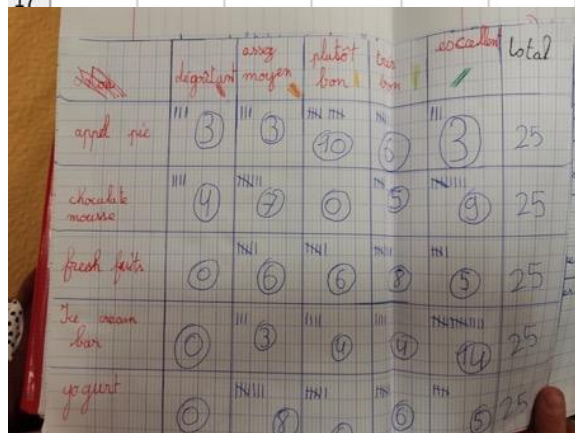 17
dégoûtant assez moyen plutôt bon très bon excellent total
appel pie 3 3 10 6 3 25
chocolate mousse 4 7 0 5 9 25
fresh fuits 0 6 6 8 5 25
Ice cream bar 0 3 4 4 14 25
yogurt 0 8 6 5 25